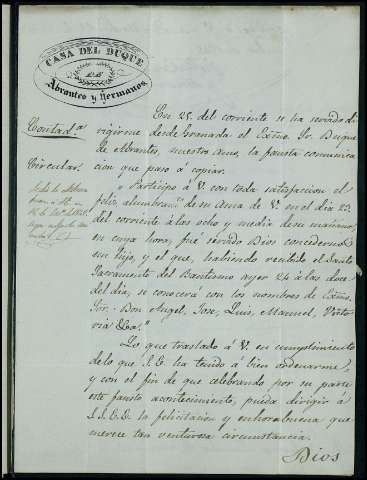 CASA DEL DUQUE
DE
Abrantes y Hermanos
Contad.ª
Circular.
En 25 del corriente se ha servido di
rigirme desde Granada el Exmo. Sr. Duque
de Abrantes, nuestro amo, la fausta comunica
cion que paso á copiar.
"Participo á V. con toda satisfaccion el
feliz alumbram.to de su Ama de V. en el dia 23
del corriente á las ocho y media de su mañana,
en cuya hora, fué servido Dios concedernos
un hijo, y el que, habiendo recibido el Santo
Sacramento del Bautismo ayer 24 á las doce
del dia, se conocerá con los nombres de Exmo.
Sor. Don Angel, José, Luis, Manuel, Victo
ria &a."
Lo que traslado á V. en cumplimiento
de lo que S.E. ha tenido á bien ordenarme,
y con el fin de que celebrando por su parte
este fausto acontecimiento, pueda dirigir á
S.S.E.E. la felicitacion y enhorabuena que
merece tan venturosa circunstancia.
Dios